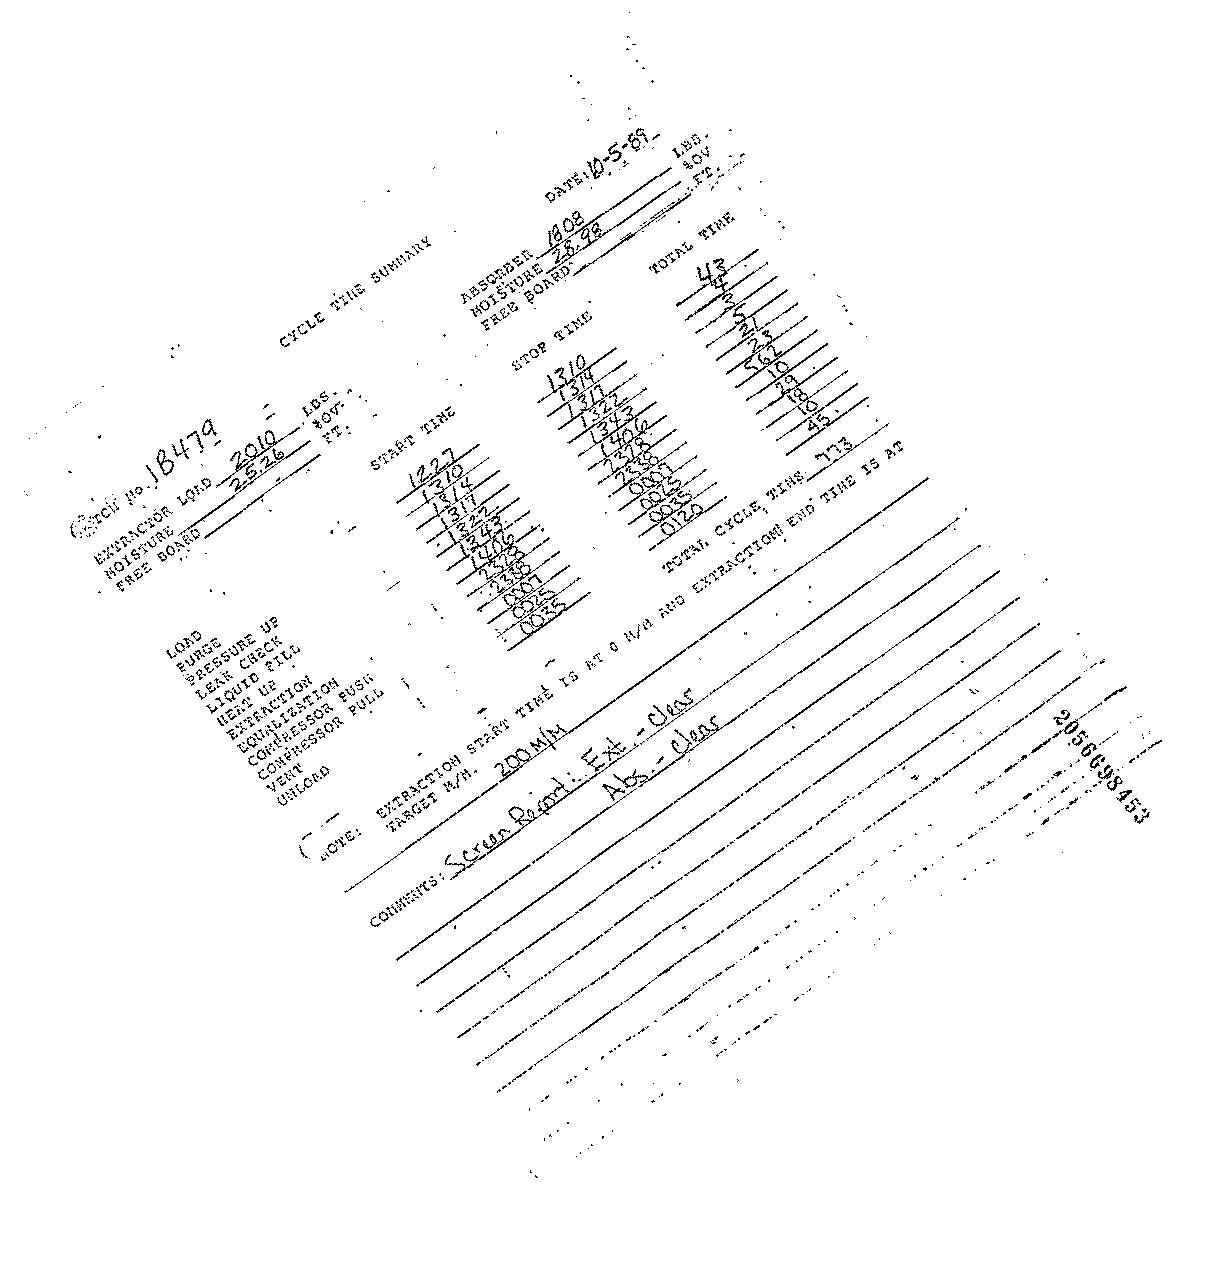 CYCLE TIME SUMMARY
DATE: 10-5-89
NO. JB479
EXTRACTOR LOAD 2010 LBS. ABSORBER 1808 LBS.
MOISTURE 25.26 %OV MOISTURE 28.98 %OV
FREE BOARD FT. FREE BOARD FT.
START TIME STOP TIME TOTAL TIME
LOAD 1227 1310 43
PURGE 1310 1314 4
PRESSURE UP 1314 1317 3
LEAK CHECK 1317 1322 5
LIQUID FILL 1322 1343 21
HEAT UP 1343 1406 23
EXTRACTION 1406 2328 562
EQUALIZATION 2328 2338 10
COMPRESSOR PUSH 2338 0007 29
COMPRESSOR PULL 0007 0025 18
VENT 0025 0035 10
UNLOAD 0035 0120 45
TOTAL CYCLE TIME 773
NOTE: EXTRACTION START TIME IS AT 0 M/M AND EXTRACTION END TIME IS AT
TARGET M/M. 200 M/M
COMMENTS: Screen Report: Ext. - Clear
Abs. - Clear
2056698453